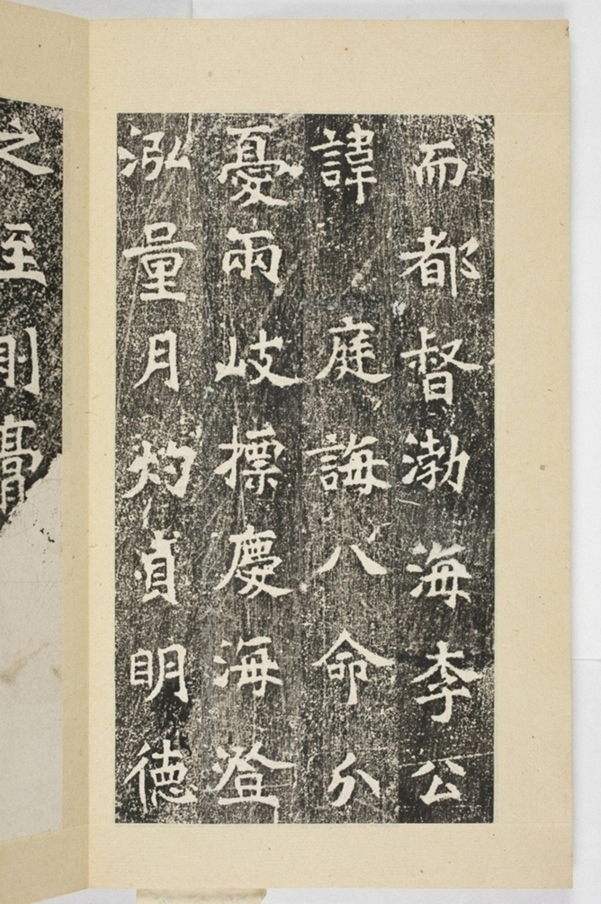 而都督渤海李公
諱 庭誨八命分
憂兩岐摽慶海澄
泓量月灼貞明徳
之至則膏